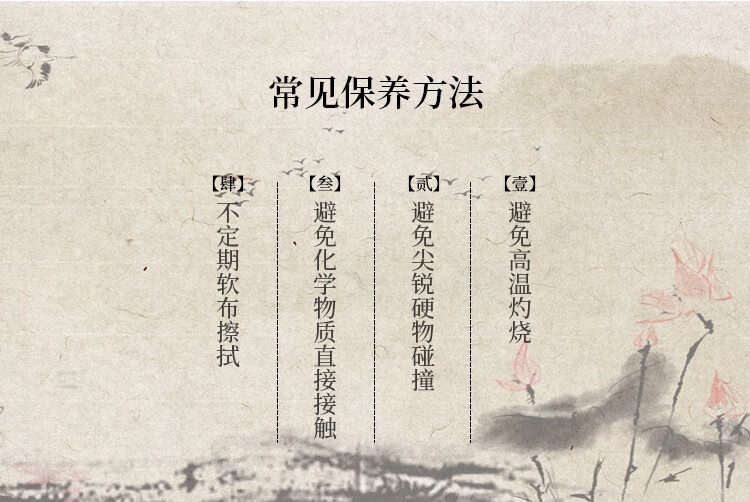 常见保养方法
【壹】
避免高温灼烧
【贰】
避免尖锐硬物碰撞
【叁】
避免化学物质直接接触
【肆】
不定期软布擦拭